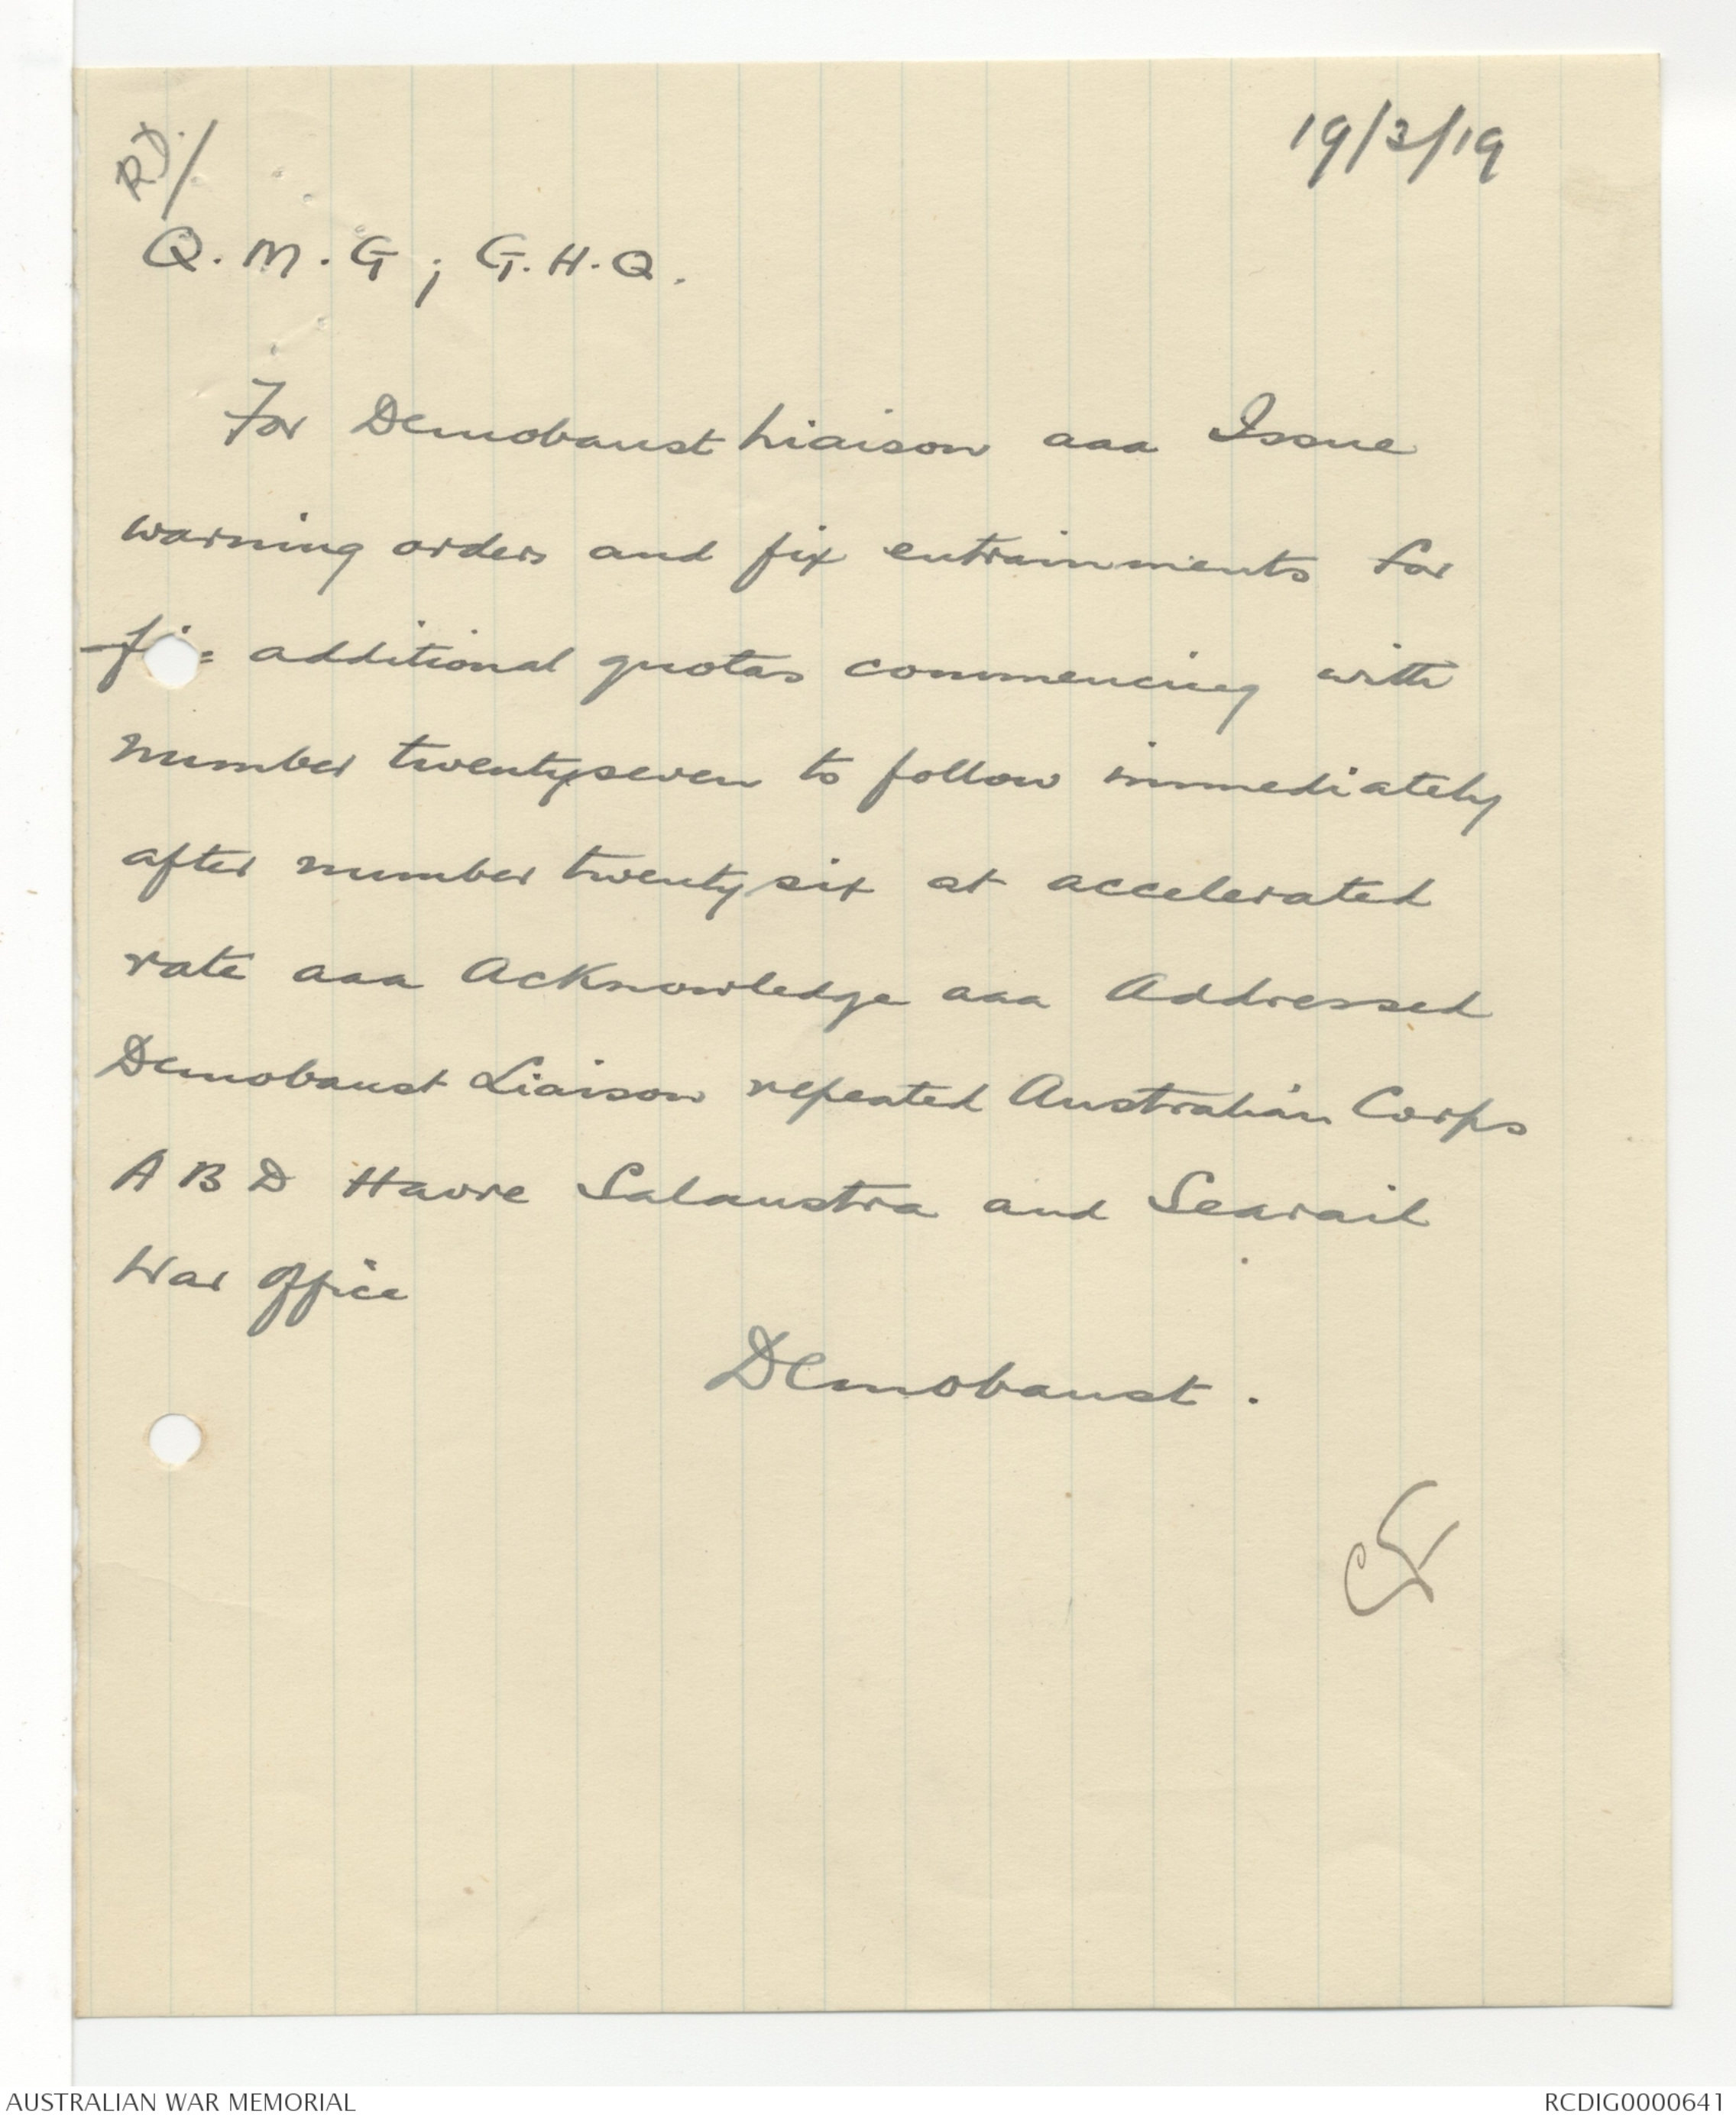 19/3/19
Q.M.G; G.H.Q.
For Demobaust Liaison aaa Issue
warning orders and fix entrainments for
additional quotas commencing with
number twentyseven to follow immediately
after number twenty six at accelerated
rate aaa Acknowledge aaa Addressed
Demobaust Liaison repeated Australian Corps
A B D Havre Salaustra and Searail
War Office
Demobaust.
AUSTRALIAN WAR MEMORIAL
RCDIG0000641